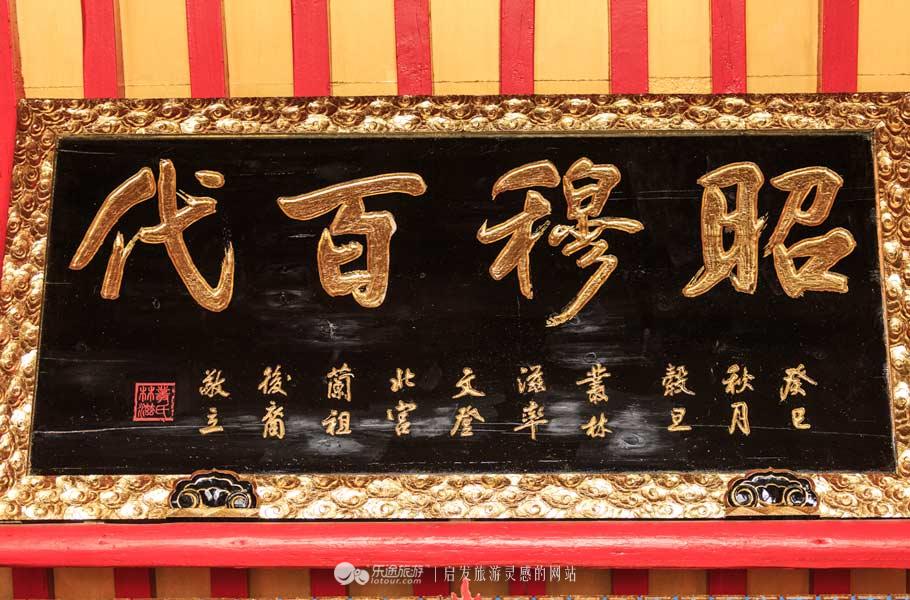 昭穆百代
癸巳
秋月
穀旦
叢林
滋率
文登
北宫
蘭祖
後裔
敬立
叢氏
林滋
乐途旅游
lotour.com
启发旅游灵感的网站